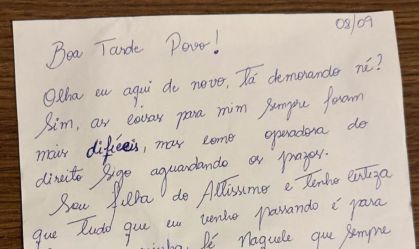 08/09
Boa Tarde Povo!
Olha eu aqui de novo, tá demorando né?
Sim, as coisas para mim sempre foram
mais difíceis, mas como operadora do
direito sigo aguardando os prazos.
Sou filha do Altíssimo e tenho certeza
que tudo que eu venho passando é para
fé Naquele que sempre